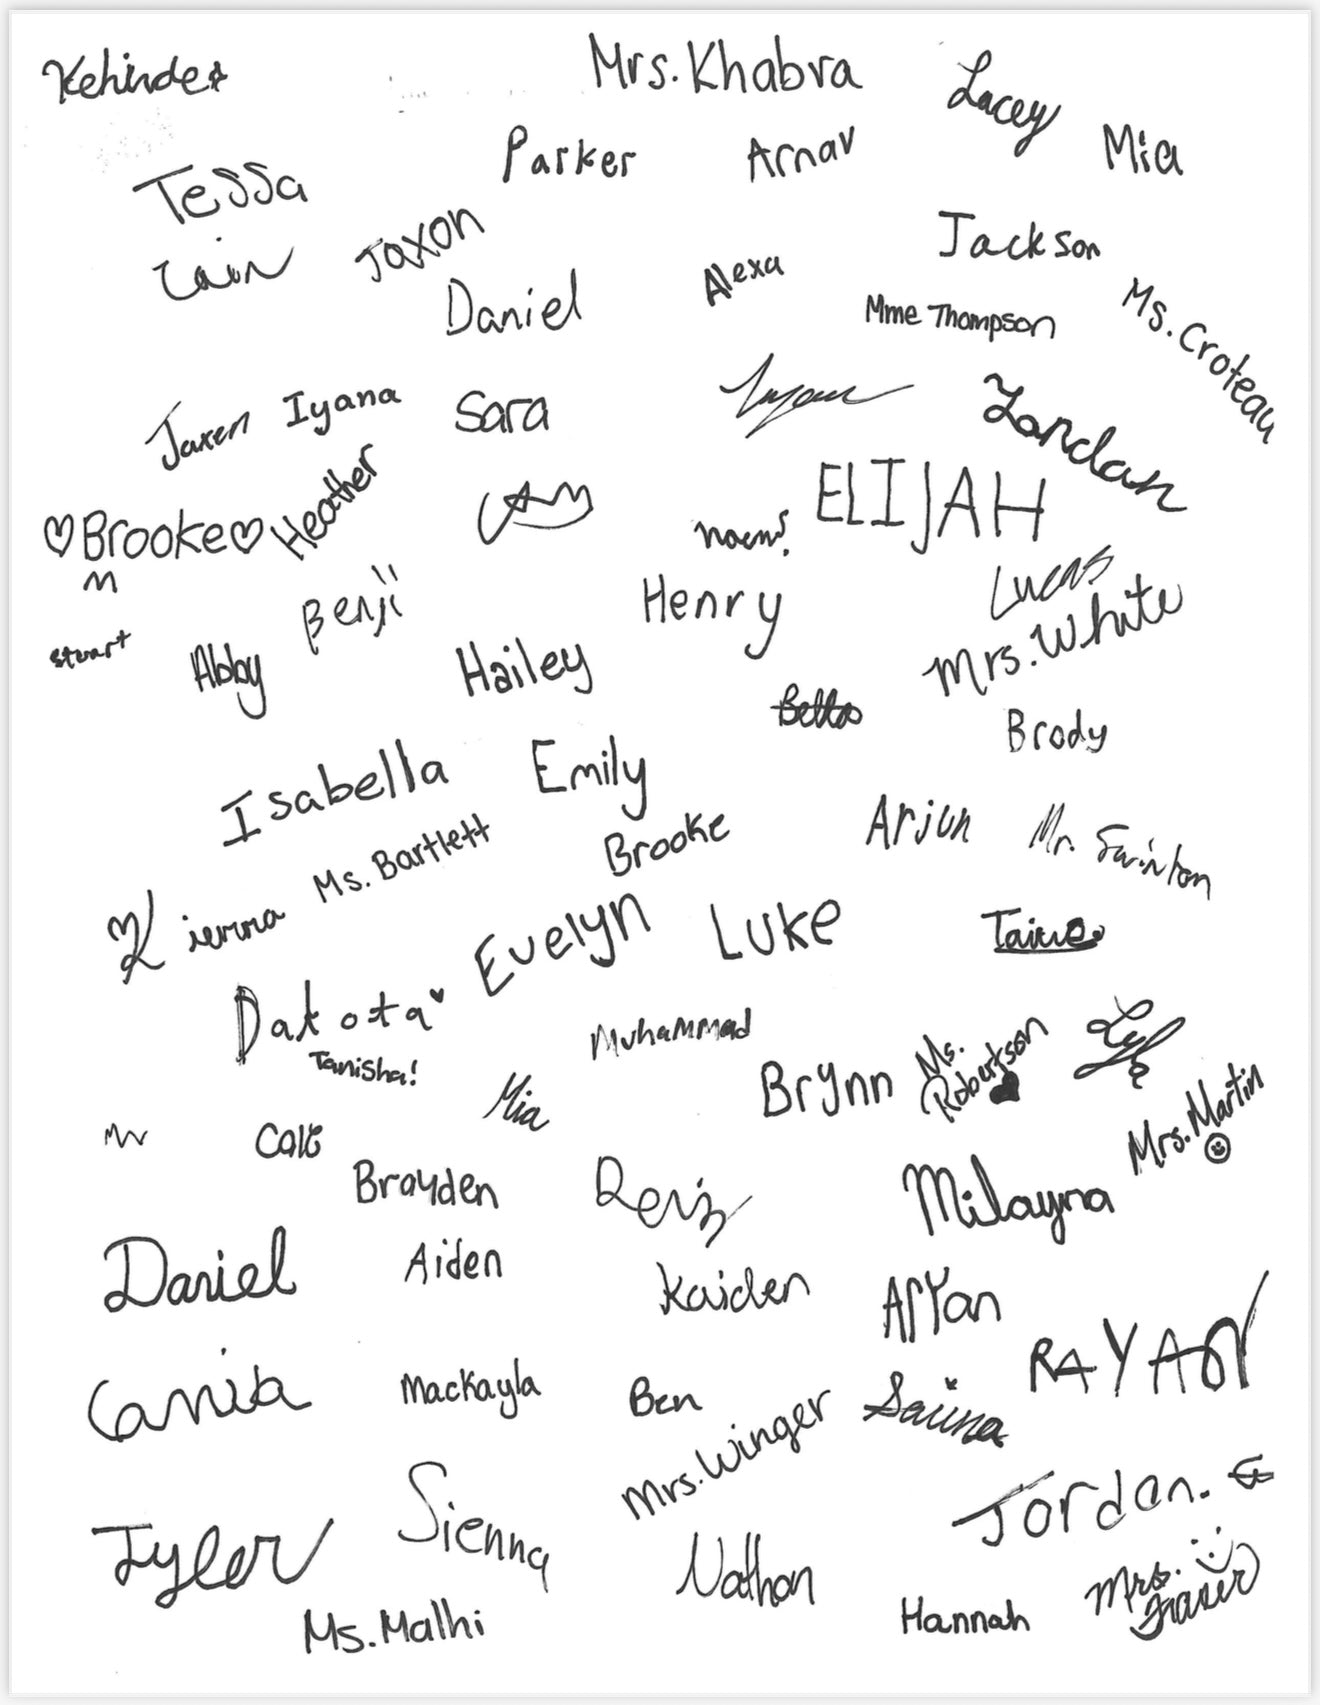 Kehinde
Mrs. Khabra
Lacey
Parker
Arnav
Mia
Tessa
Cain
Jaxon
Jackson
Alexa
Daniel
Mme Thompson
Ms. Croteau
Jaxen
Iyana
Sara
Landan
Heather
Brooke
ELIJAH
Naomi
Benji
Henry
Lucas
Mrs. White
Stuart
Abby
Hailey
Bella
Brody
Isabella
Emily
Brooke
Arjun
Mr. Swinton
Ms. Bartlett
Kienna
Evelyn
Luke
Dakota
Muhammad
Tanisha!
Mia
Brynn
Ms. Robertson
Lyla
Mrs. Martin
Cole
Brayden
Milayna
Daniel
Aiden
Kaiden
Aryan
RAYAN
Mackayla
Ben
Mrs. Winger
Saiina
Jordan.
Tyler
Sienna
Nathan
Mrs. Fraser
Hannah
Ms. Malhi